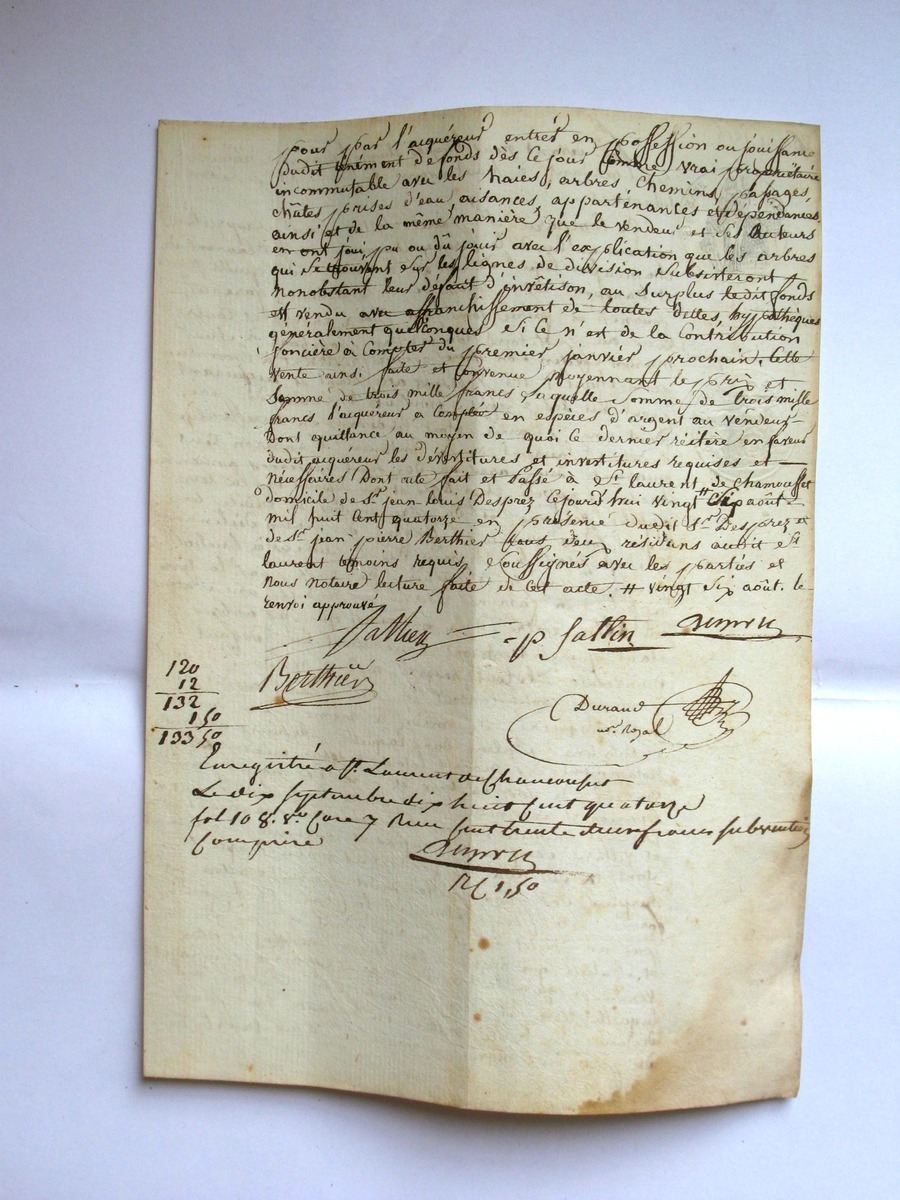 pour par l'acquéreur entrer en possession ou jouissance
dudit ténement de fonds dès ce jour comme vrai propriétaire
incommutable avec les haies, arbres, chemins, passages,
chûtes, prises d'eau, aisances, appartenances et dépendances,
ainsi et de la même manière que le vendeur et ses auteurs
en ont joui, pu ou dû jouir avec l'explication que les arbres
qui se trouvent sur les lignes de division subsisteront
nonobstant leur défaut d'invêtison, au surplus ledit fonds
est vendu avec affranchissement de toutes dettes, hypothèques
généralement quelconques si ce n'est de la contribution
foncière à compter du premier janvier prochain. Cette
vente ainsi faite et convenue moyennant le prix et
somme de trois mille francs, laquelle somme de trois mille
francs l'acquéreur a comptée en espèces d'argent au vendeur
Dont quittance au moyen de quoi ce dernier réitère en faveur
dudit acquéreur les dévêtitures et invêtitures requises et
nécessaires Dont acte fait et passé à St laurent de chamousset
domicile de Sr jean-louis Desprez cejourd'hui vingt # août
mil huit cent quatorze en présence dudit Sr Desprez et
de Sr jean pierre Berthier tous deux résidans audit St
laurent témoins requis, soussignés avec les parties et
nous notaire lecture faite de cet acte. # vingt six août. le
renvoi approuvé
p
Berthier
Durand
nre. Royal
120
12
132
1 50
133 50
Enregistré à St. Laurent de Chamousset
Le dix septembre dix huit cent quatorze
fol 108. Vo Case 7 Reçu cent trente deux francs subvention
Comprise
1,50